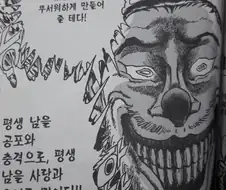 무서워하게 만들어
줄 테다!
평생 남을
공포와
충격으로, 평생
남을 사랑과